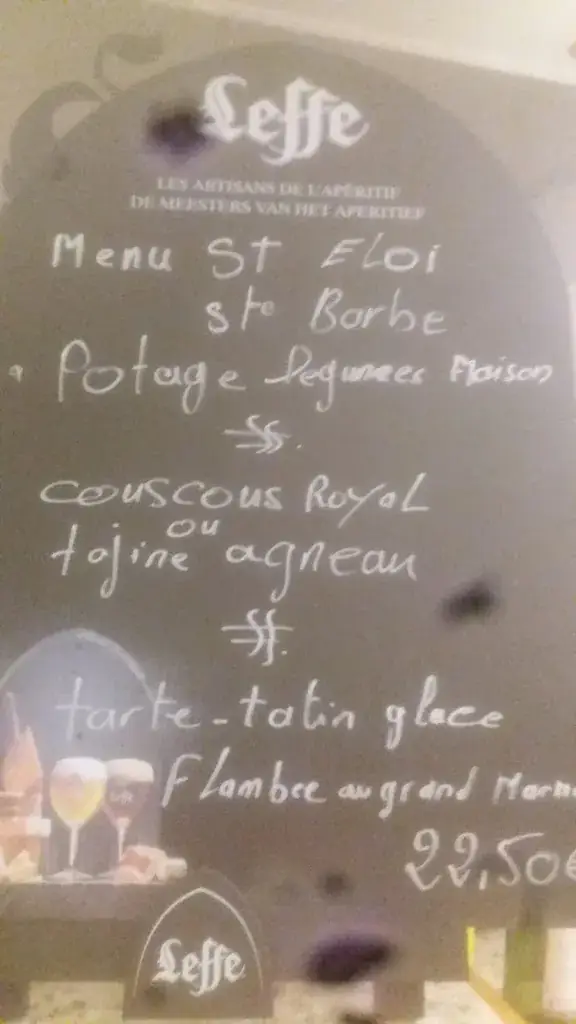 Leffe
LES ARTISANS DE L'APÉRITIF
DE MEESTERS VAN HET APERITIEF
Menu St Eloi
Ste Barbe
Potage legumes Maison
couscous Royal
ou
tajine agneau
tarte-tatin glace
Flambee au grand Marn
22,50€
Leffe